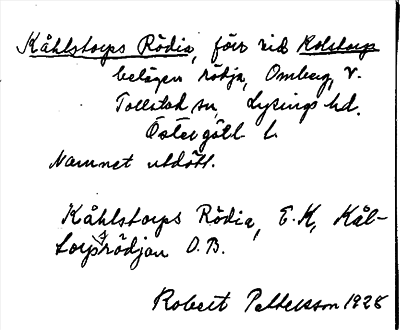 Kåhlstorps Rödia, förr vid Kolstorp
belägen rödja, Omberg, V.
Tollstad sn, Lysings hd.
Östergötl. l.
Namnet utdött.
Kåhlstorps Rödia, E.K, Kål-
torpsrödjan O.B.
Robert Pettersson 1928